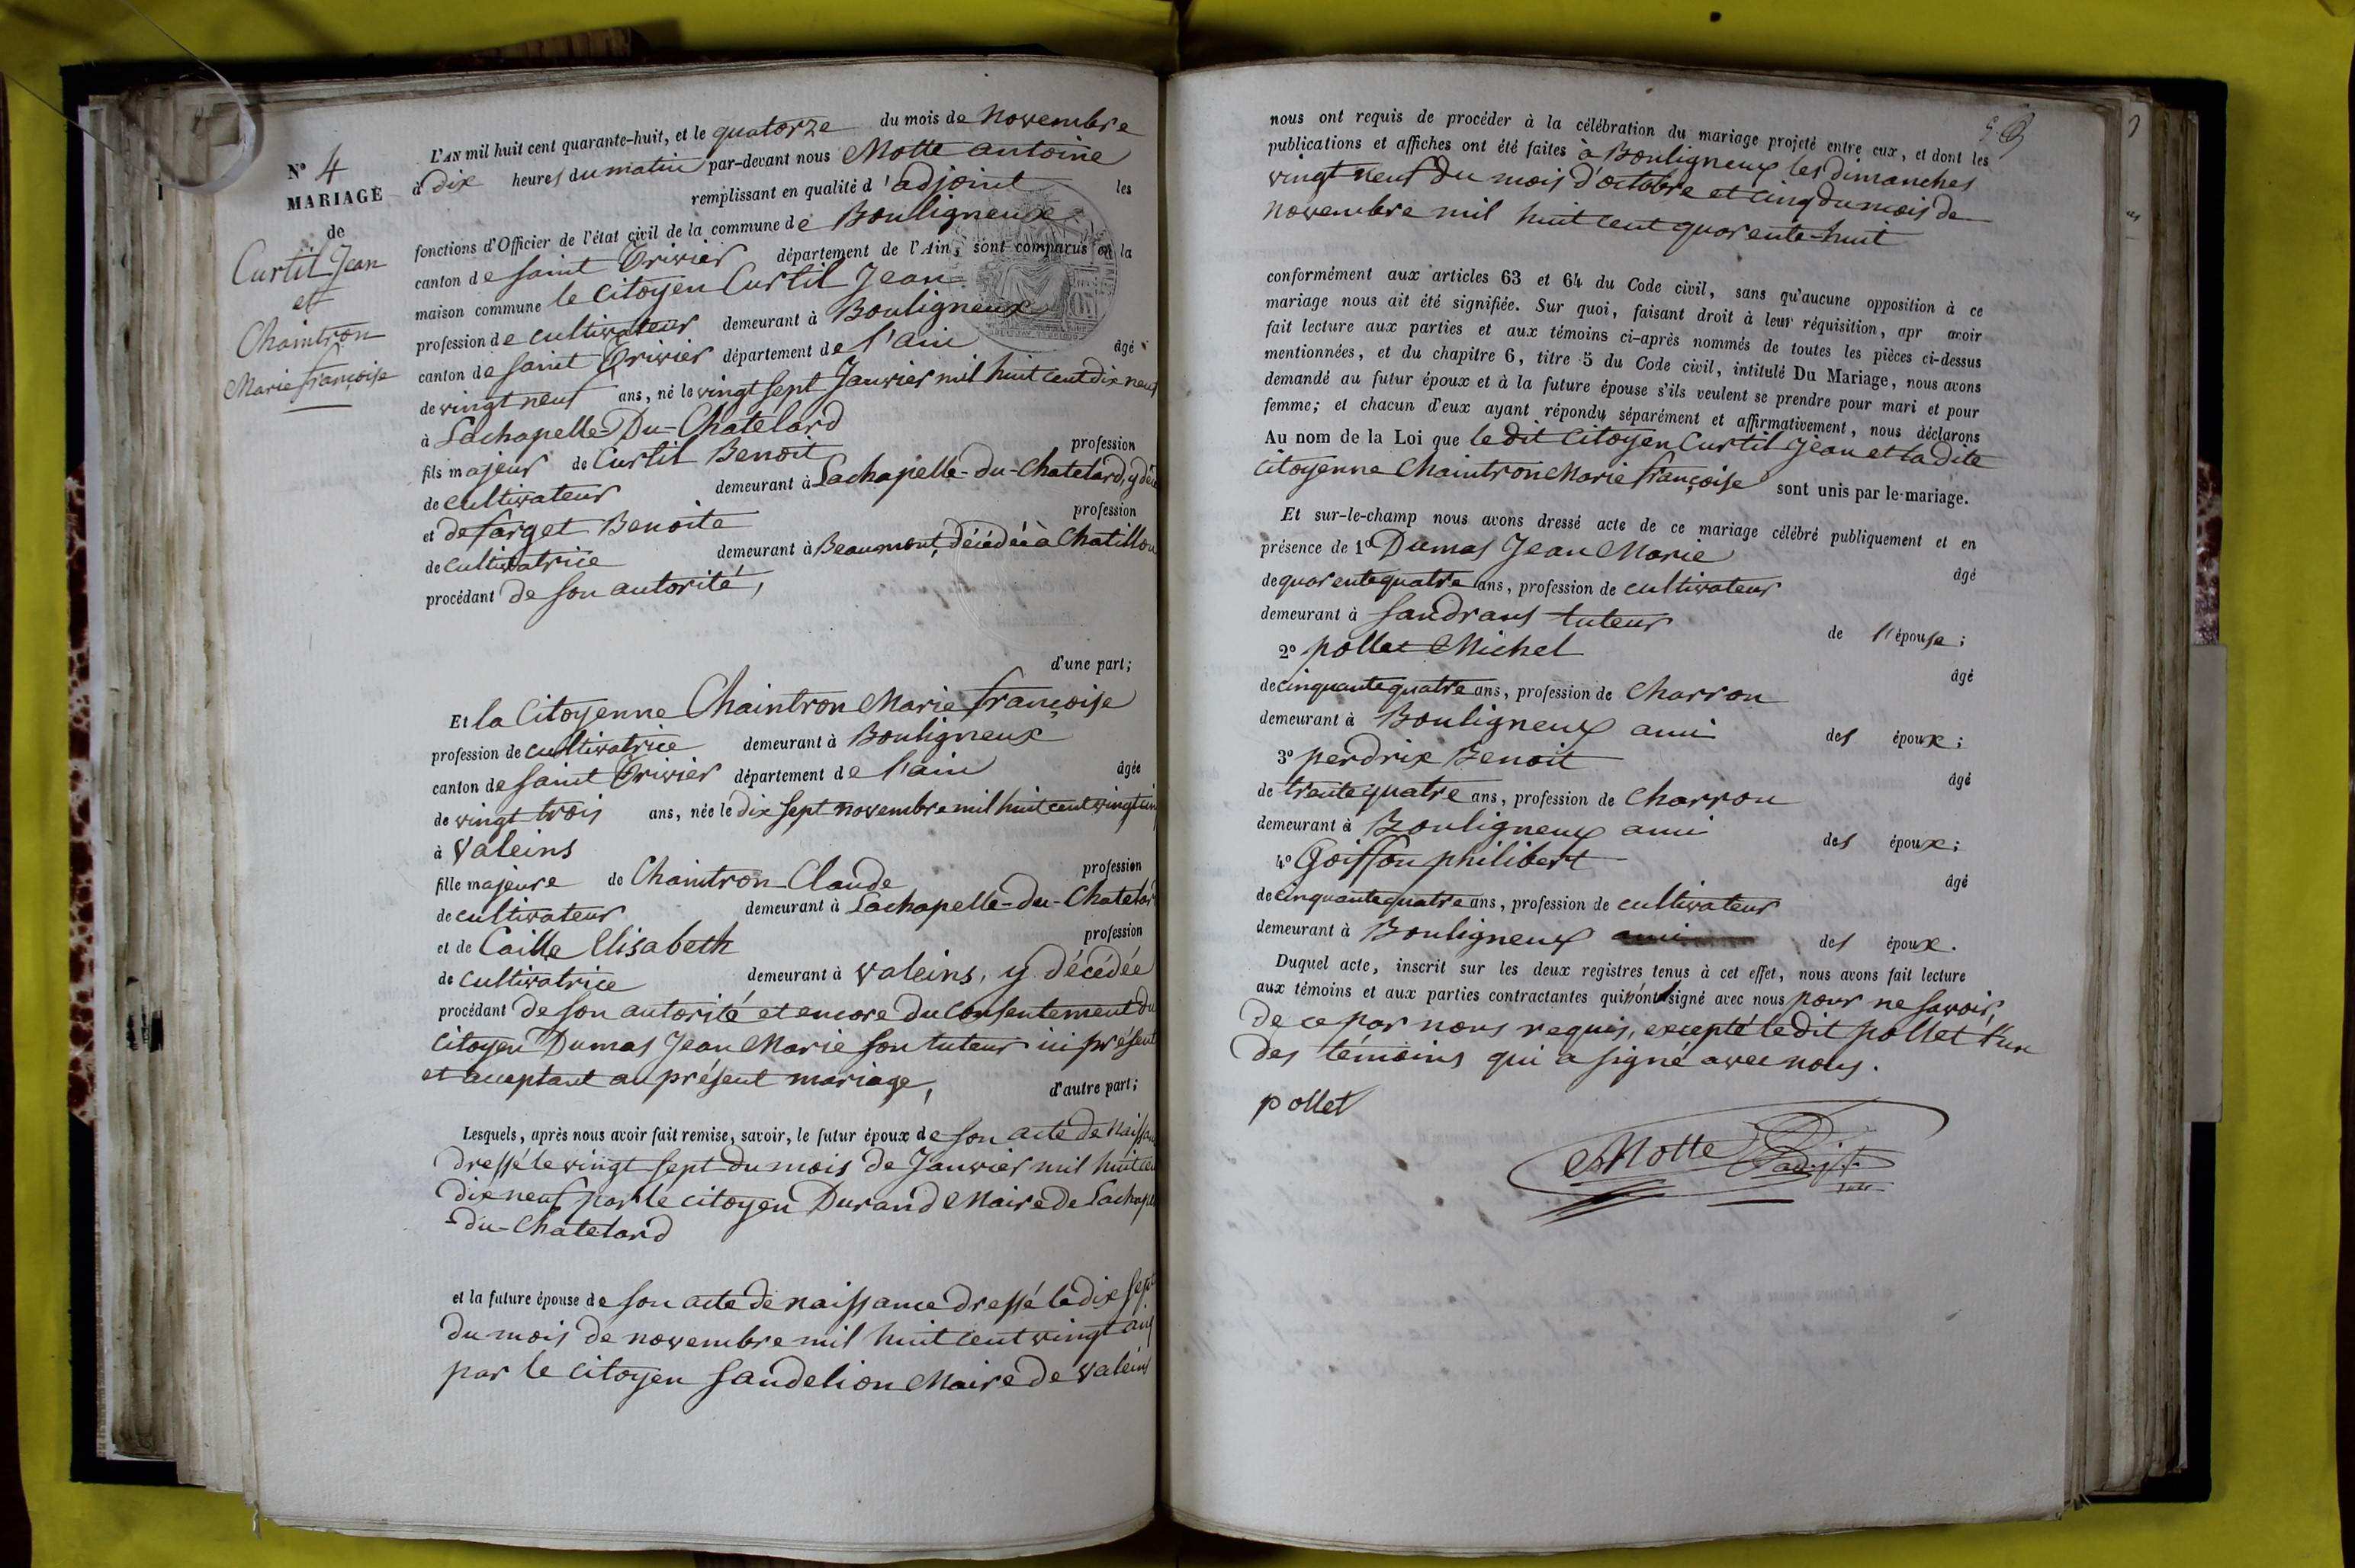 N° 4
MARIAGE
de
Curtil Jean
et
Chaintron
Marie françoise
L'AN mil huit cent quarante-huit, et le quatorze du mois de Novembre
à dix heures du matin par-devant nous Motte antoine
remplissant en qualité d'adjoint les
fonctions d'Officier de l'état civil de la commune de Bouligneux
canton de saint Trivier département de l'Ain, sont comparus en la
maison commune le Citoyen Curtil Jean
profession de cultivateur demeurant à Bouligneux
canton de saint Trivier département de l'ain âgé
de vingt neuf ans, né le vingt sept Janvier mil huit cent dix neuf
à Lachapelle-Du-Chatelard
fils majeur de Curtil Benoit profession
de cultivateur demeurant à Lachapelle-du-Chatelard, y déc
et de farget Benoite profession
de cultivatrice demeurant à Beaumont, décédée à Chatillon
procédant de son autorité,
d'une part;
Et la Citoyenne Chaintron Marie françoise
profession de cultivatrice demeurant à Bouligneux
canton de saint Trivier département de l'ain âgée
de vingt trois ans, née le dix sept novembre mil huit cent vingt
à Valeins
fille majeure de Chaintron Claude profession
de cultivateur demeurant à Lachapelle-du-Chatelar
et de Caille Elisabeth profession
de cultivatrice demeurant à Valeins, y décédée
procédant de son autorité et encore du consentement du
Citoyen Dumas Jean Marie son tuteur ici présent
et acceptant au présent mariage, d'autre part;
Lesquels, après nous avoir fait remise, savoir, le futur époux de son acte de Naissan
dressé le vingt sept du mois de Janvier mil huit cen
dix neuf par le citoyen Durand Maire de Lachape
-du-Chatelard
et la future épouse de son acte de naissance dressé le dix sept
du mois de novembre mil huit cent vingt cinq
par le Citoyen Sandelion Maire de Valeins
nous ont requis de procéder à la célébration du mariage projeté entre eux, et dont les
publications et affiches ont été faites à Bouligneux les dimanches
vingt neuf du mois d'octobre et cinq du mois de
novembre mil huit cent quarente-huit
conformément aux articles 63 et 64 du Code civil, sans qu'aucune opposition à ce
mariage nous ait été signifiée. Sur quoi, faisant droit à leur réquisition, apr avoir
fait lecture aux parties et aux témoins ci-après nommés de toutes les pièces ci-dessus
mentionnées, et du chapitre 6, titre 5 du Code civil, intitulé Du Mariage, nous avons
demandé au futur époux et à la future épouse s'ils veulent se prendre pour mari et pour
femme; et chacun d'eux ayant répondu séparément et affirmativement, nous déclarons
Au nom de la Loi que le dit Citoyen Curtil Jean et la dite
Citoyenne Chaintron Marie françoise sont unis par le mariage.
Et sur-le-champ nous avons dressé acte de ce mariage célébré publiquement et en
présence de 1° Dumas Jean Marie âgé
de quarente quatre ans, profession de cultivateur
demeurant à Sandrans tuteur de l'épouse;
2° pollet Michel âgé
de cinquante quatre ans, profession de Charron
demeurant à Bouligneux ami des époux;
3° perdrix Benoit âgé
de trente quatre ans, profession de Charron
demeurant à Bouligneux ami des époux;
4° Goiffon philibert âgé
de cinquante quatre ans, profession de cultivateur
demeurant à Bouligneux ami des époux.
Duquel acte, inscrit sur les deux registres tenus à cet effet, nous avons fait lecture
aux témoins et aux parties contractantes qui n'ont signé avec nous pour ne savoir,
de ce par nous requis, excepté le dit pollet l'un
des témoins qui a signé avec nous.
pollet
Motte adjt